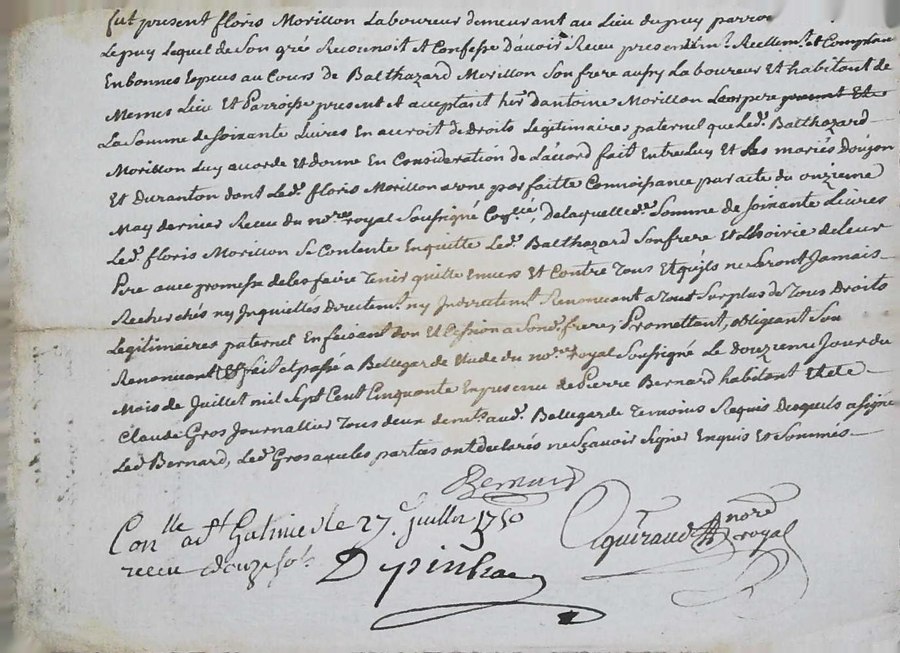 fut present floris Morillon Laboureur demeurant au Lieu dupuy parroi
Lepuy Lequel de Son gré Reconnoit Et Confesse D'avoir Receu presentemt. Reellemt. et Comptan
En bonnes Especes au Cours de Balthazard Morillon Son frere aussy Laboureur Et habitant de
Memes Lieu Et Parroisse present et acceptant hers. d'antoine Morillon Leur pere
La Somme de Soixante Livres En accroit de Droits Legitimaires paternel que Led. Balthazard
Morillon Luy accorde Et donne En Consideration de L'accord fait Entre Luy Et Les mariés Doujon
Et Duranton dont Led. floris Morillon a une parfaitte Connoissance par acte du onzieme
May dernier Receu du nore. royal Soussigné De laquelle de. Somme de Soixante Livres
Led. floris Morillon Se Contente Enquitte Led. Balthazard Son frere Et L'hoirie de Leur
Pere avec promesse de Les faire Tenir quitte Envers Et Contre Tous Et quils ne Seront Jamais
Recherchés ny Inquiettés Directemt. ny Indirectemt. Renoncant a Tout Surplus de Tous Droits
Legitimaires paternel En faisant Don Et Cession a Sond. frere, Promettant, obligeant Son
Renoncant Et fait et passé a Bellegarde Etude du nore. royal Soussigné Le Douzieme Jour du
Mois de Juillet mil Sept Cent Cinquante En presence de Pierre Bernard habitant Et
Claude Gros Journallier Tous deux demts. aud. Bellegarde Temoins Requis Desquels a signé
Led. Bernard, Led. Gros avec les parties ont declarés ne Sçavoir Signer Enquis Et Sommés
Bernard
Conlle a St Galmier le 27e. juillet 1750
receu douze sols
nore
royal